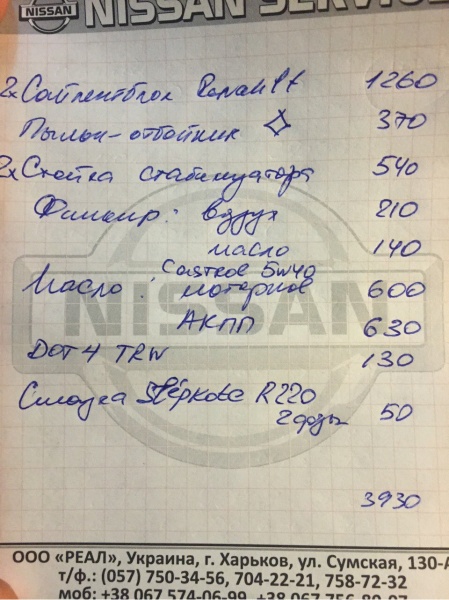 NISSAN NISSAN SERVICE
2x Сайлентблок Renault 1260
Пыльн-отбойник 370
2x Стойка стабилизатора 540
Фильтр: воздух 210
масло 140
Castrol 5w40
Масло: моторное 600
АКПП 630
DOT 4 TRW 130
Смазка R220
2 дозы 50
3930
NISSAN
ООО «РЕАЛ», Украина, г. Харьков, ул. Сумская, 130-А
т/ф.: (057) 750-34-56, 704-22-21, 758-72-32
моб: +38 067 574-06-99, +38 067 756-80-07